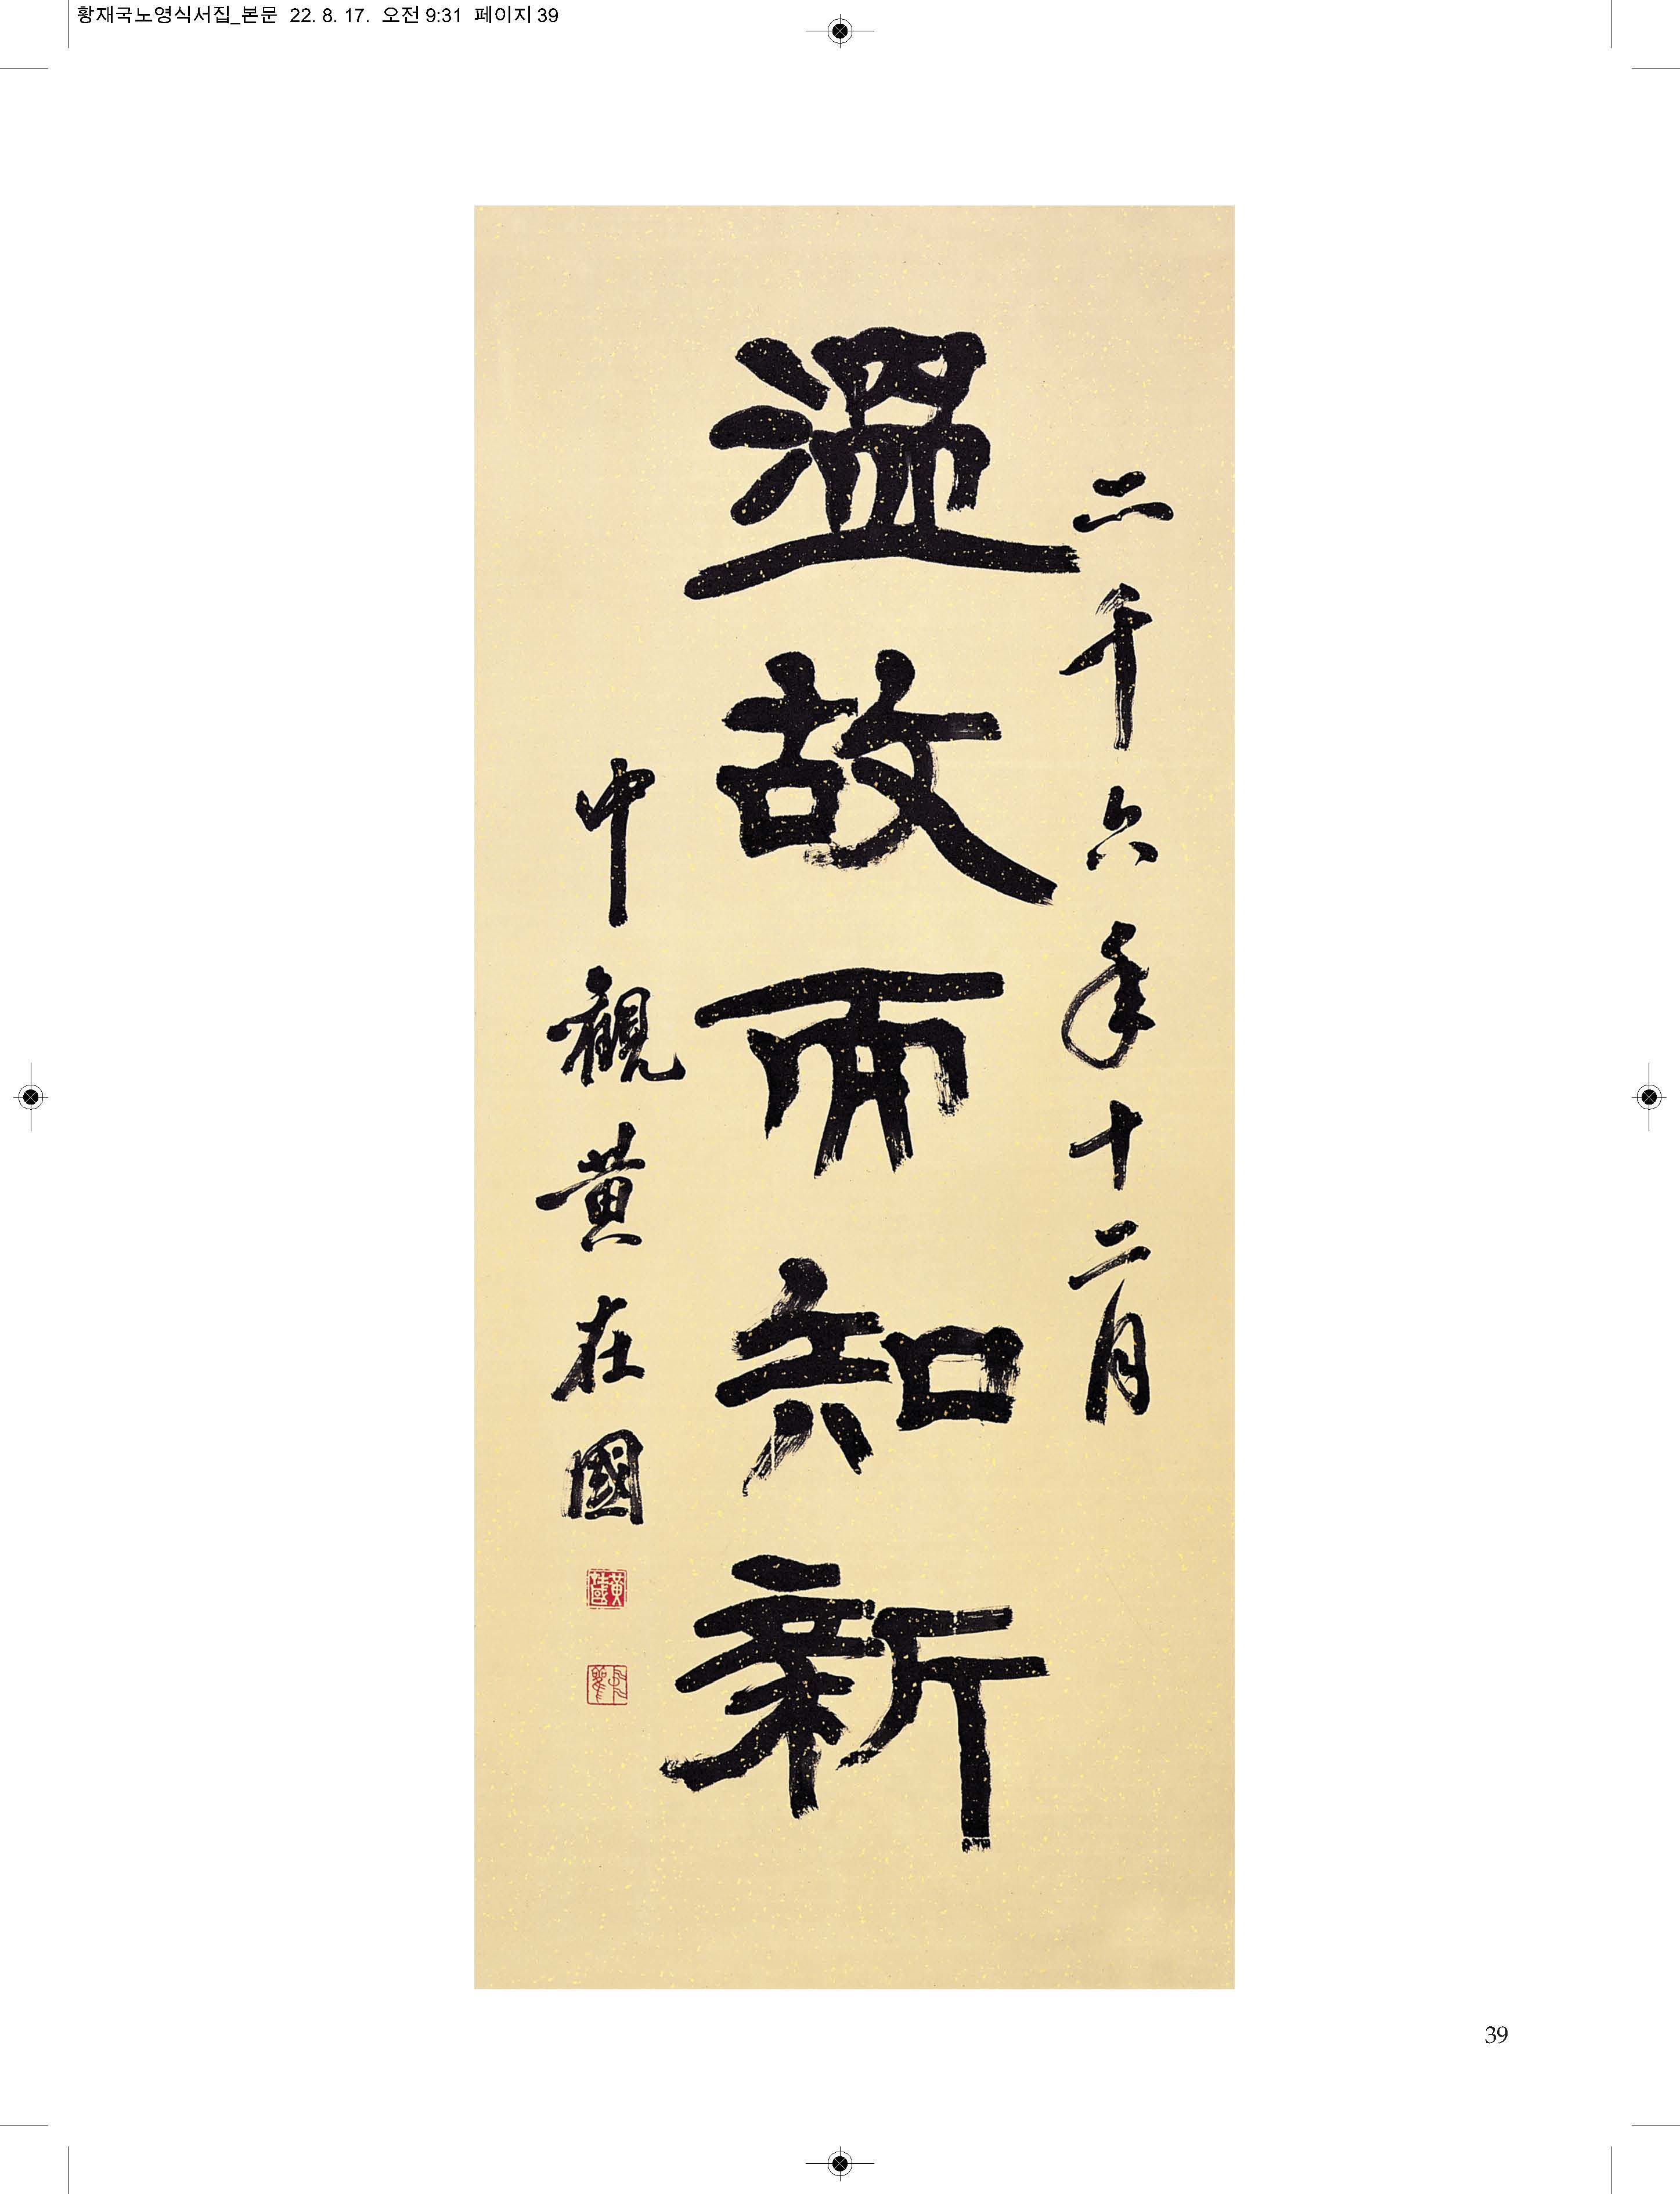 황재국노영식서집_본문 22. 8. 17. 오전 9:31 페이지 39
二千六年十二月
溫故而知新
中觀黃在國
黃在國
39